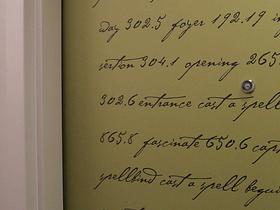 way 302.5 foyer 192.19 i
sertion 304.1 opening 265.
302.6 entrance cast a spell
865.8 fascinate 650.6 cap
spellbind cast a spell begui